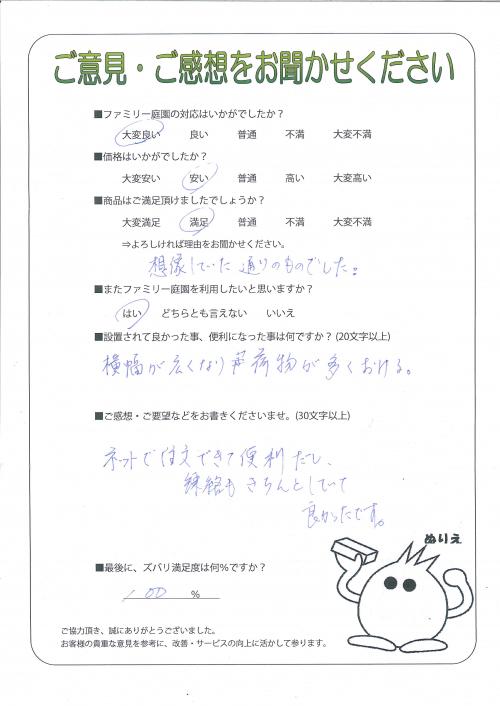 ご意見・ご感想をお聞かせください
■ファミリー庭園の対応はいかがでしたか？
大変良い 良い 普通 不満 大変不満
■価格はいかがでしたか？
大変安い 安い 普通 高い 大変高い
■商品はご満足頂けましたでしょうか？
大変満足 満足 普通 不満 大変不満
⇒よろしければ理由をお聞かせください。
想像していた通りのものでした。
■またファミリー庭園を利用したいと思いますか？
はい どちらとも言えない いいえ
■設置されて良かった事、便利になった事は何ですか？(20文字以上)
横幅が広くなり荷物が多くおける。
■ご感想・ご要望などをお書きくださいませ。(30文字以上)
ネットで注文できて便利だし、
連絡もきちんとしていて
良かったです。
ぬりえ
■最後に、ズバリ満足度は何%ですか？
100 %
ご協力頂き、誠にありがとうございました。
お客様の貴重な意見を参考に、改善・サービスの向上に活かして参ります。